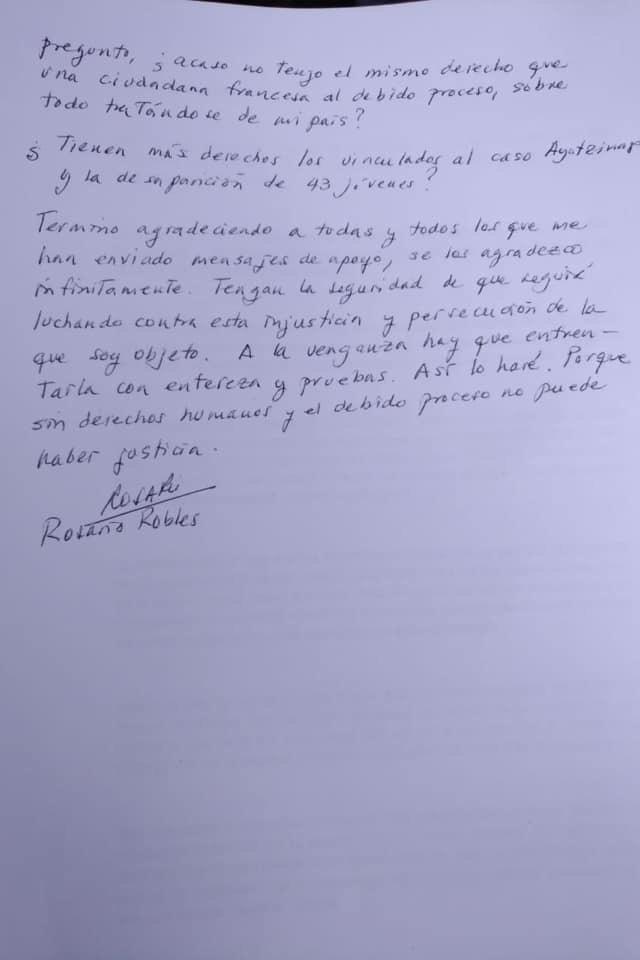 pregunto, ¿acaso no tengo el mismo derecho que
una ciudadana francesa al debido proceso, sobre
todo tratándose de mi país?
¿Tienen más derechos los vinculados al caso Ayotzinap
y la desaparición de 43 jóvenes?
Termino agradeciendo a todas y todos los que me
han enviado mensajes de apoyo, se los agradezco
infinitamente. Tengan la seguridad de que seguiré
luchando contra esta injusticia y persecución de la
que soy objeto. A la venganza hay que enfren-
tarla con entereza y pruebas. Así lo haré. Porque
sin derechos humanos y el debido proceso no puede
haber justicia.
Rosario Robles